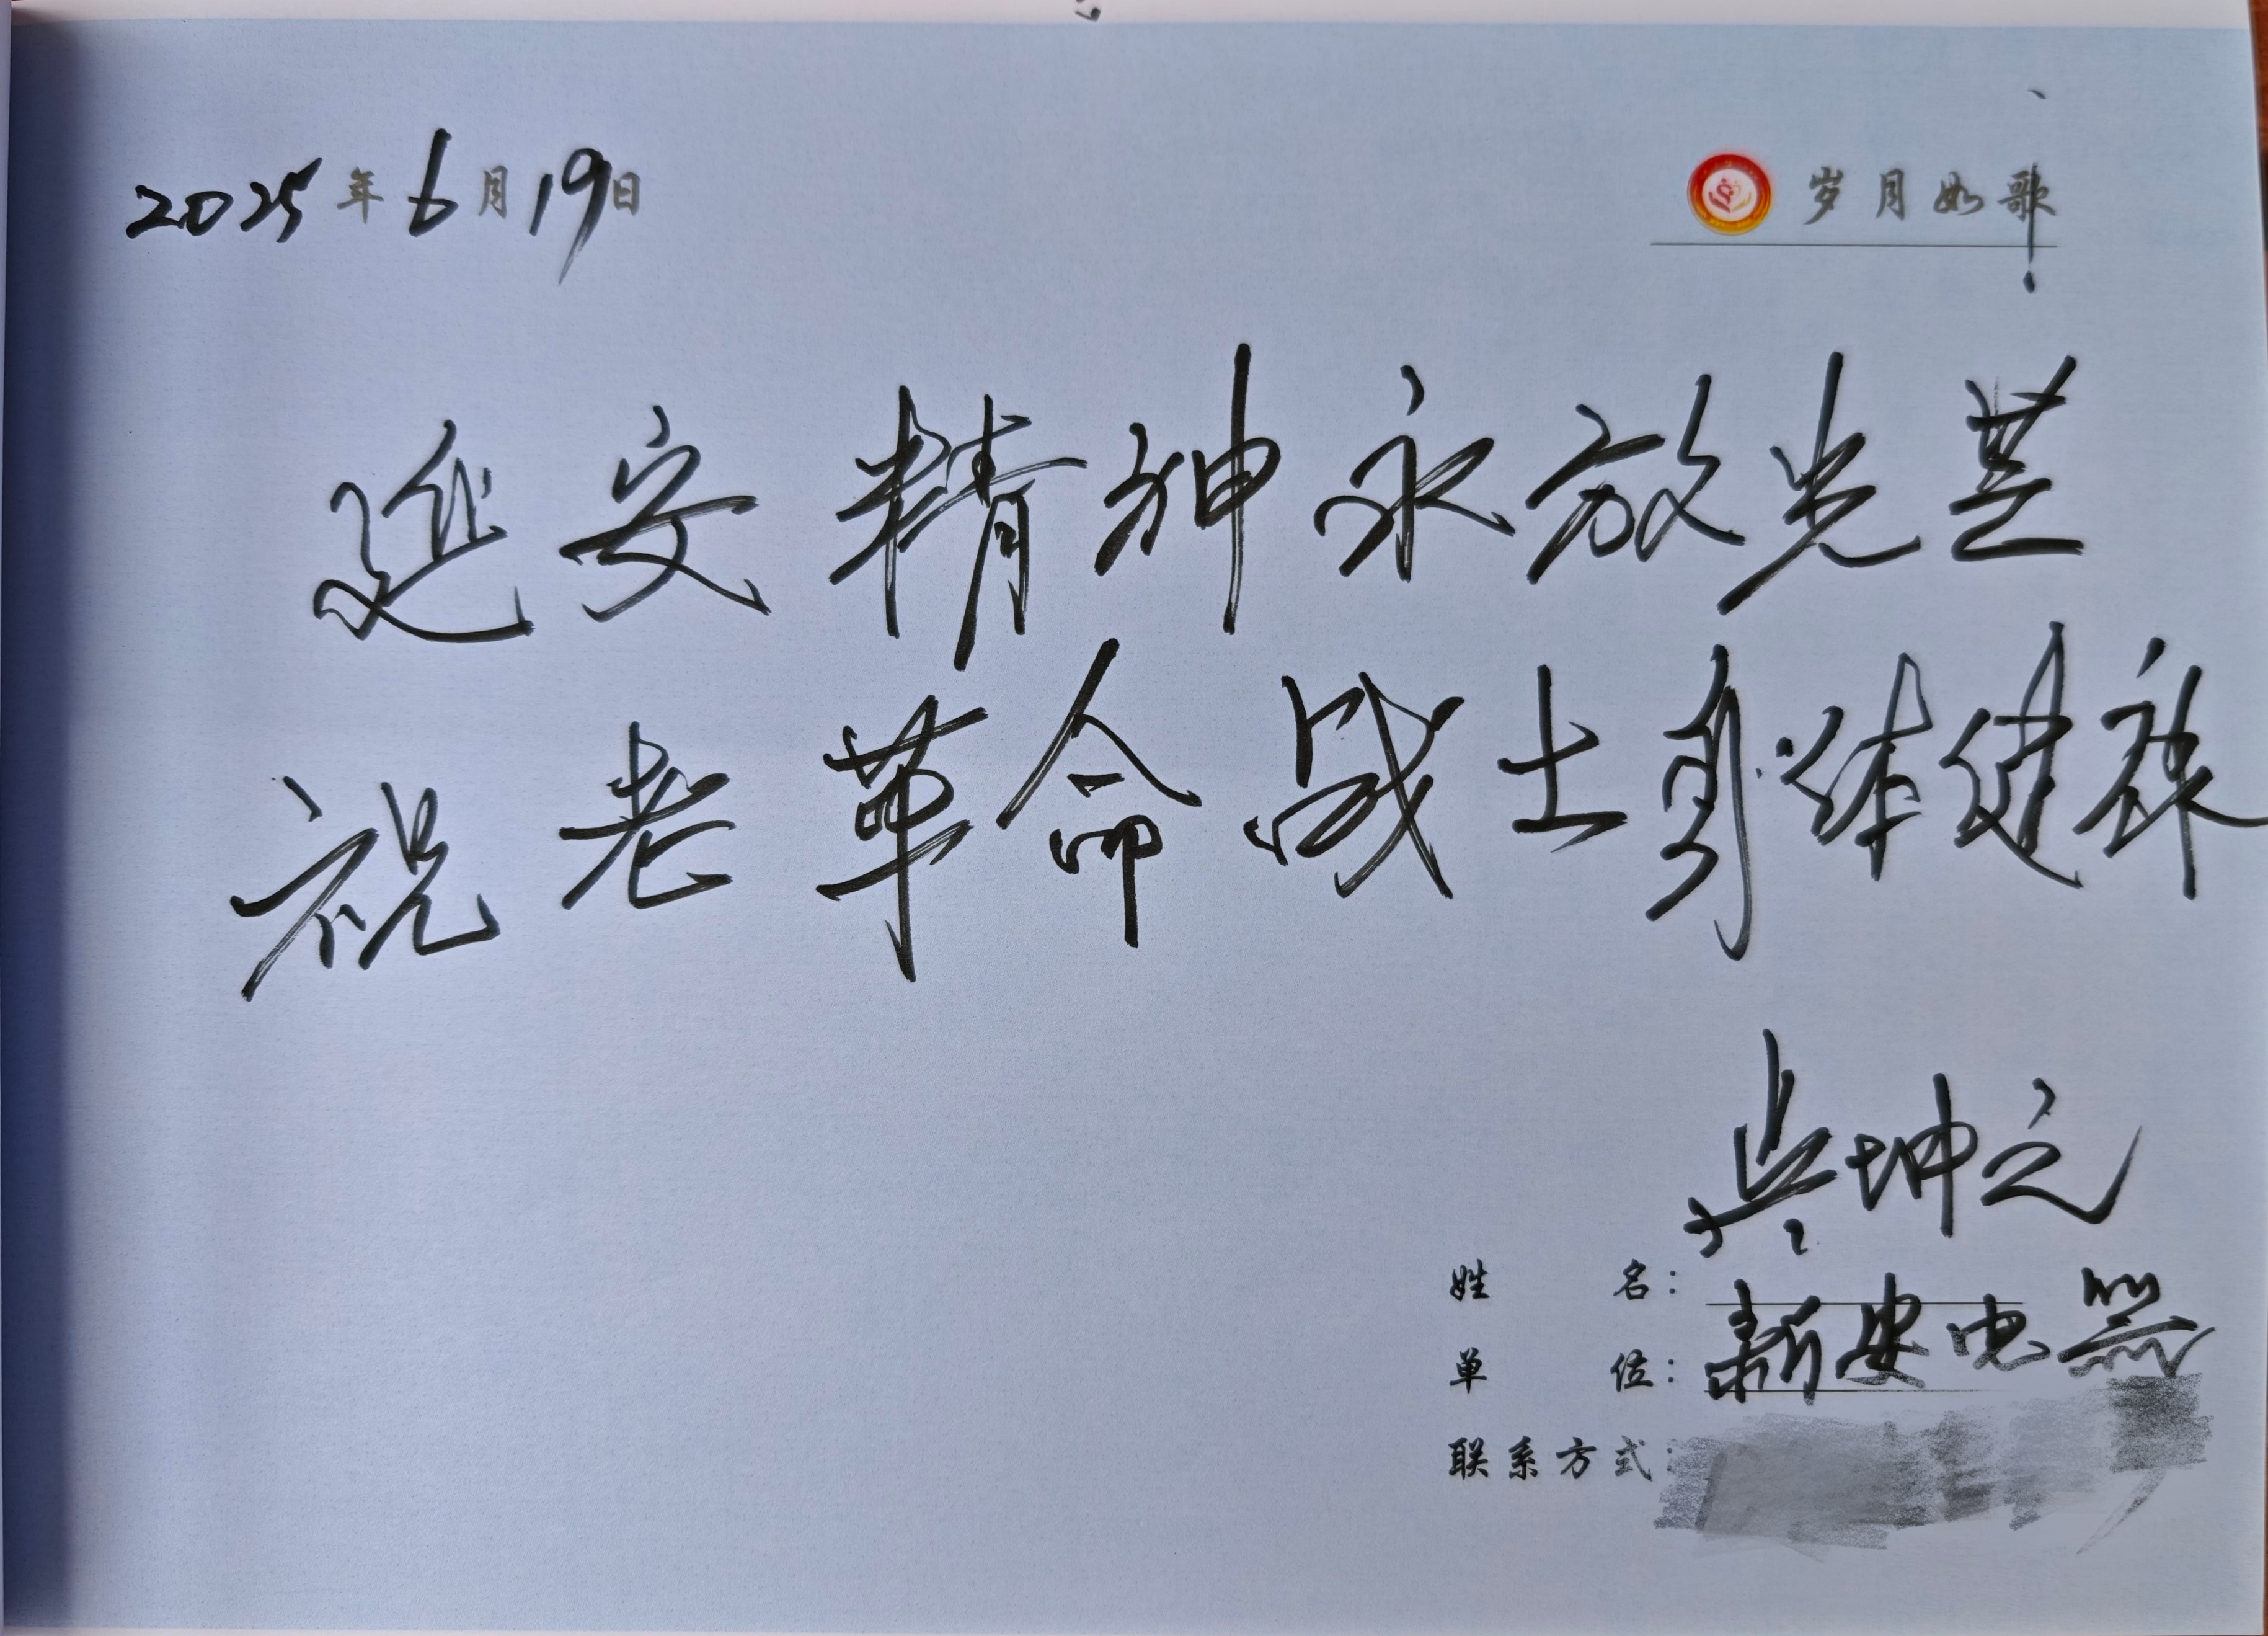 2025年6月19日
岁月如歌
延安精神永放光芒
祝老革命战士身体健康
吴坤之
姓名：
单位：新安电器
联系方式：